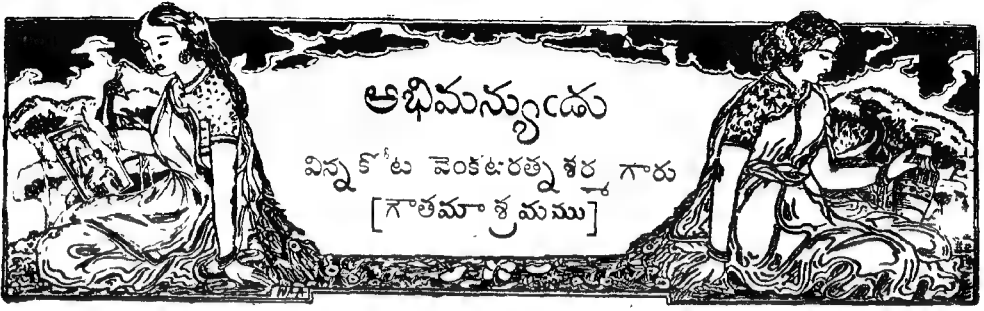 అభిమన్యుఁడు
విన్నకోట వెంకటరత్నశర్మ గారు
[గౌతమాశ్రమము]